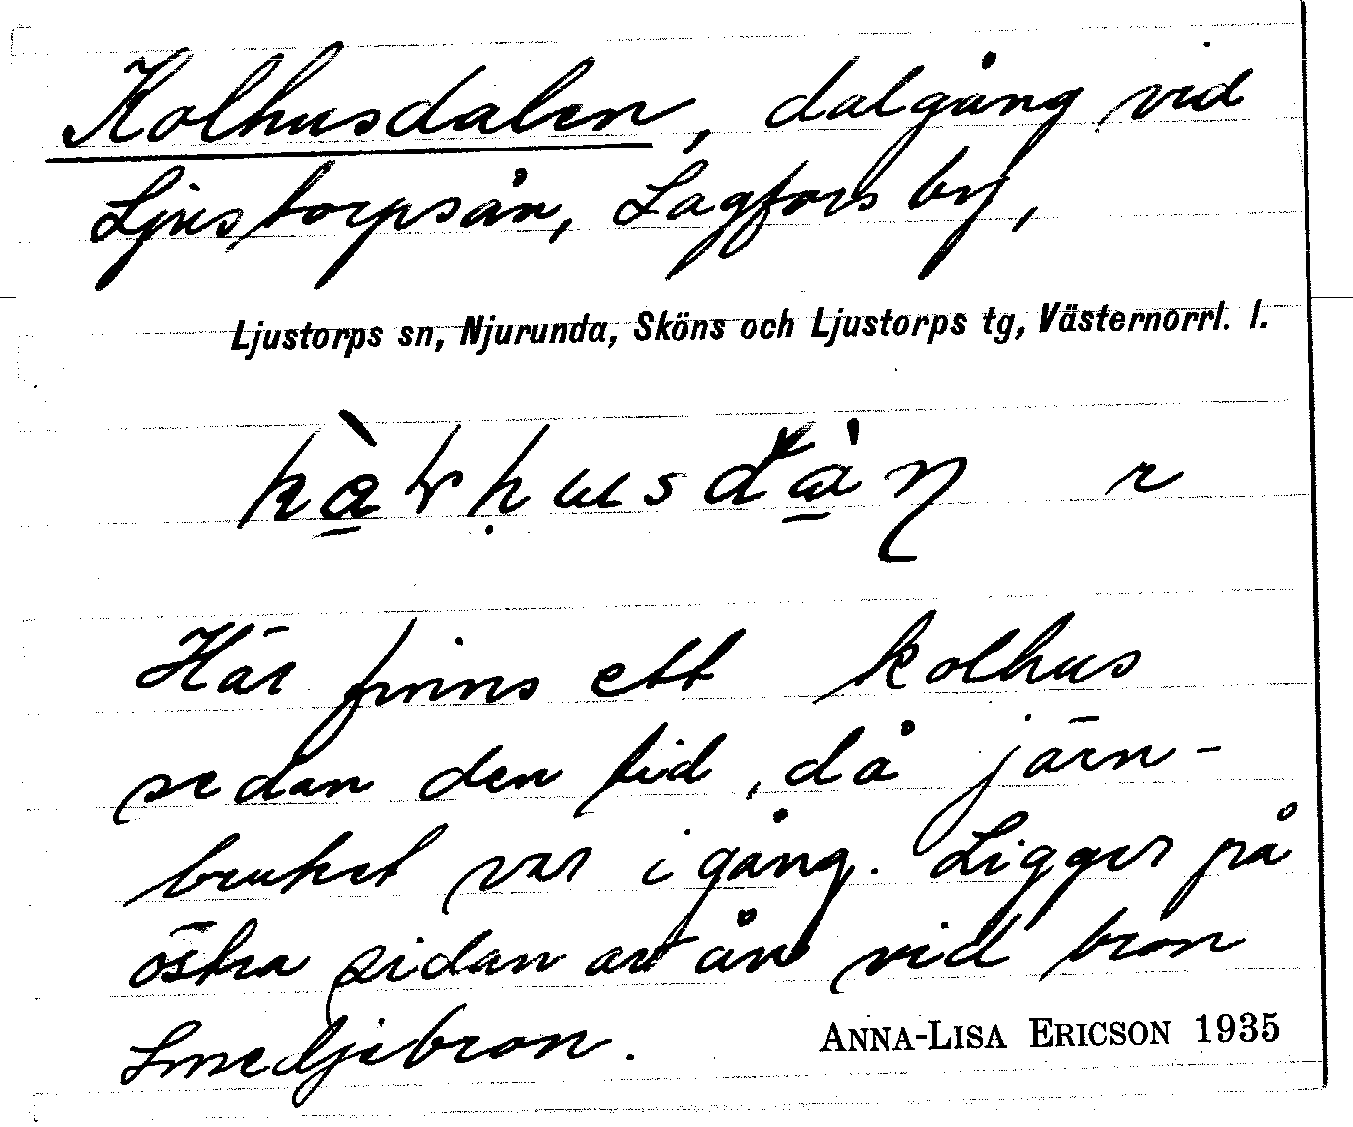 Kolhusdalen, dalgång vid
Ljustorpsån, Lagfors by,
Ljustorps sn, Njurunda, Sköns och Ljustorps tg, Västernorrl. l.
r
Här finns ett kolhus
sedan den tid, då järn-
bruket var igång. Ligger på
östra sidan av ån vid bron
Smedjebron.
ANNA-LISA ERICSON 1935